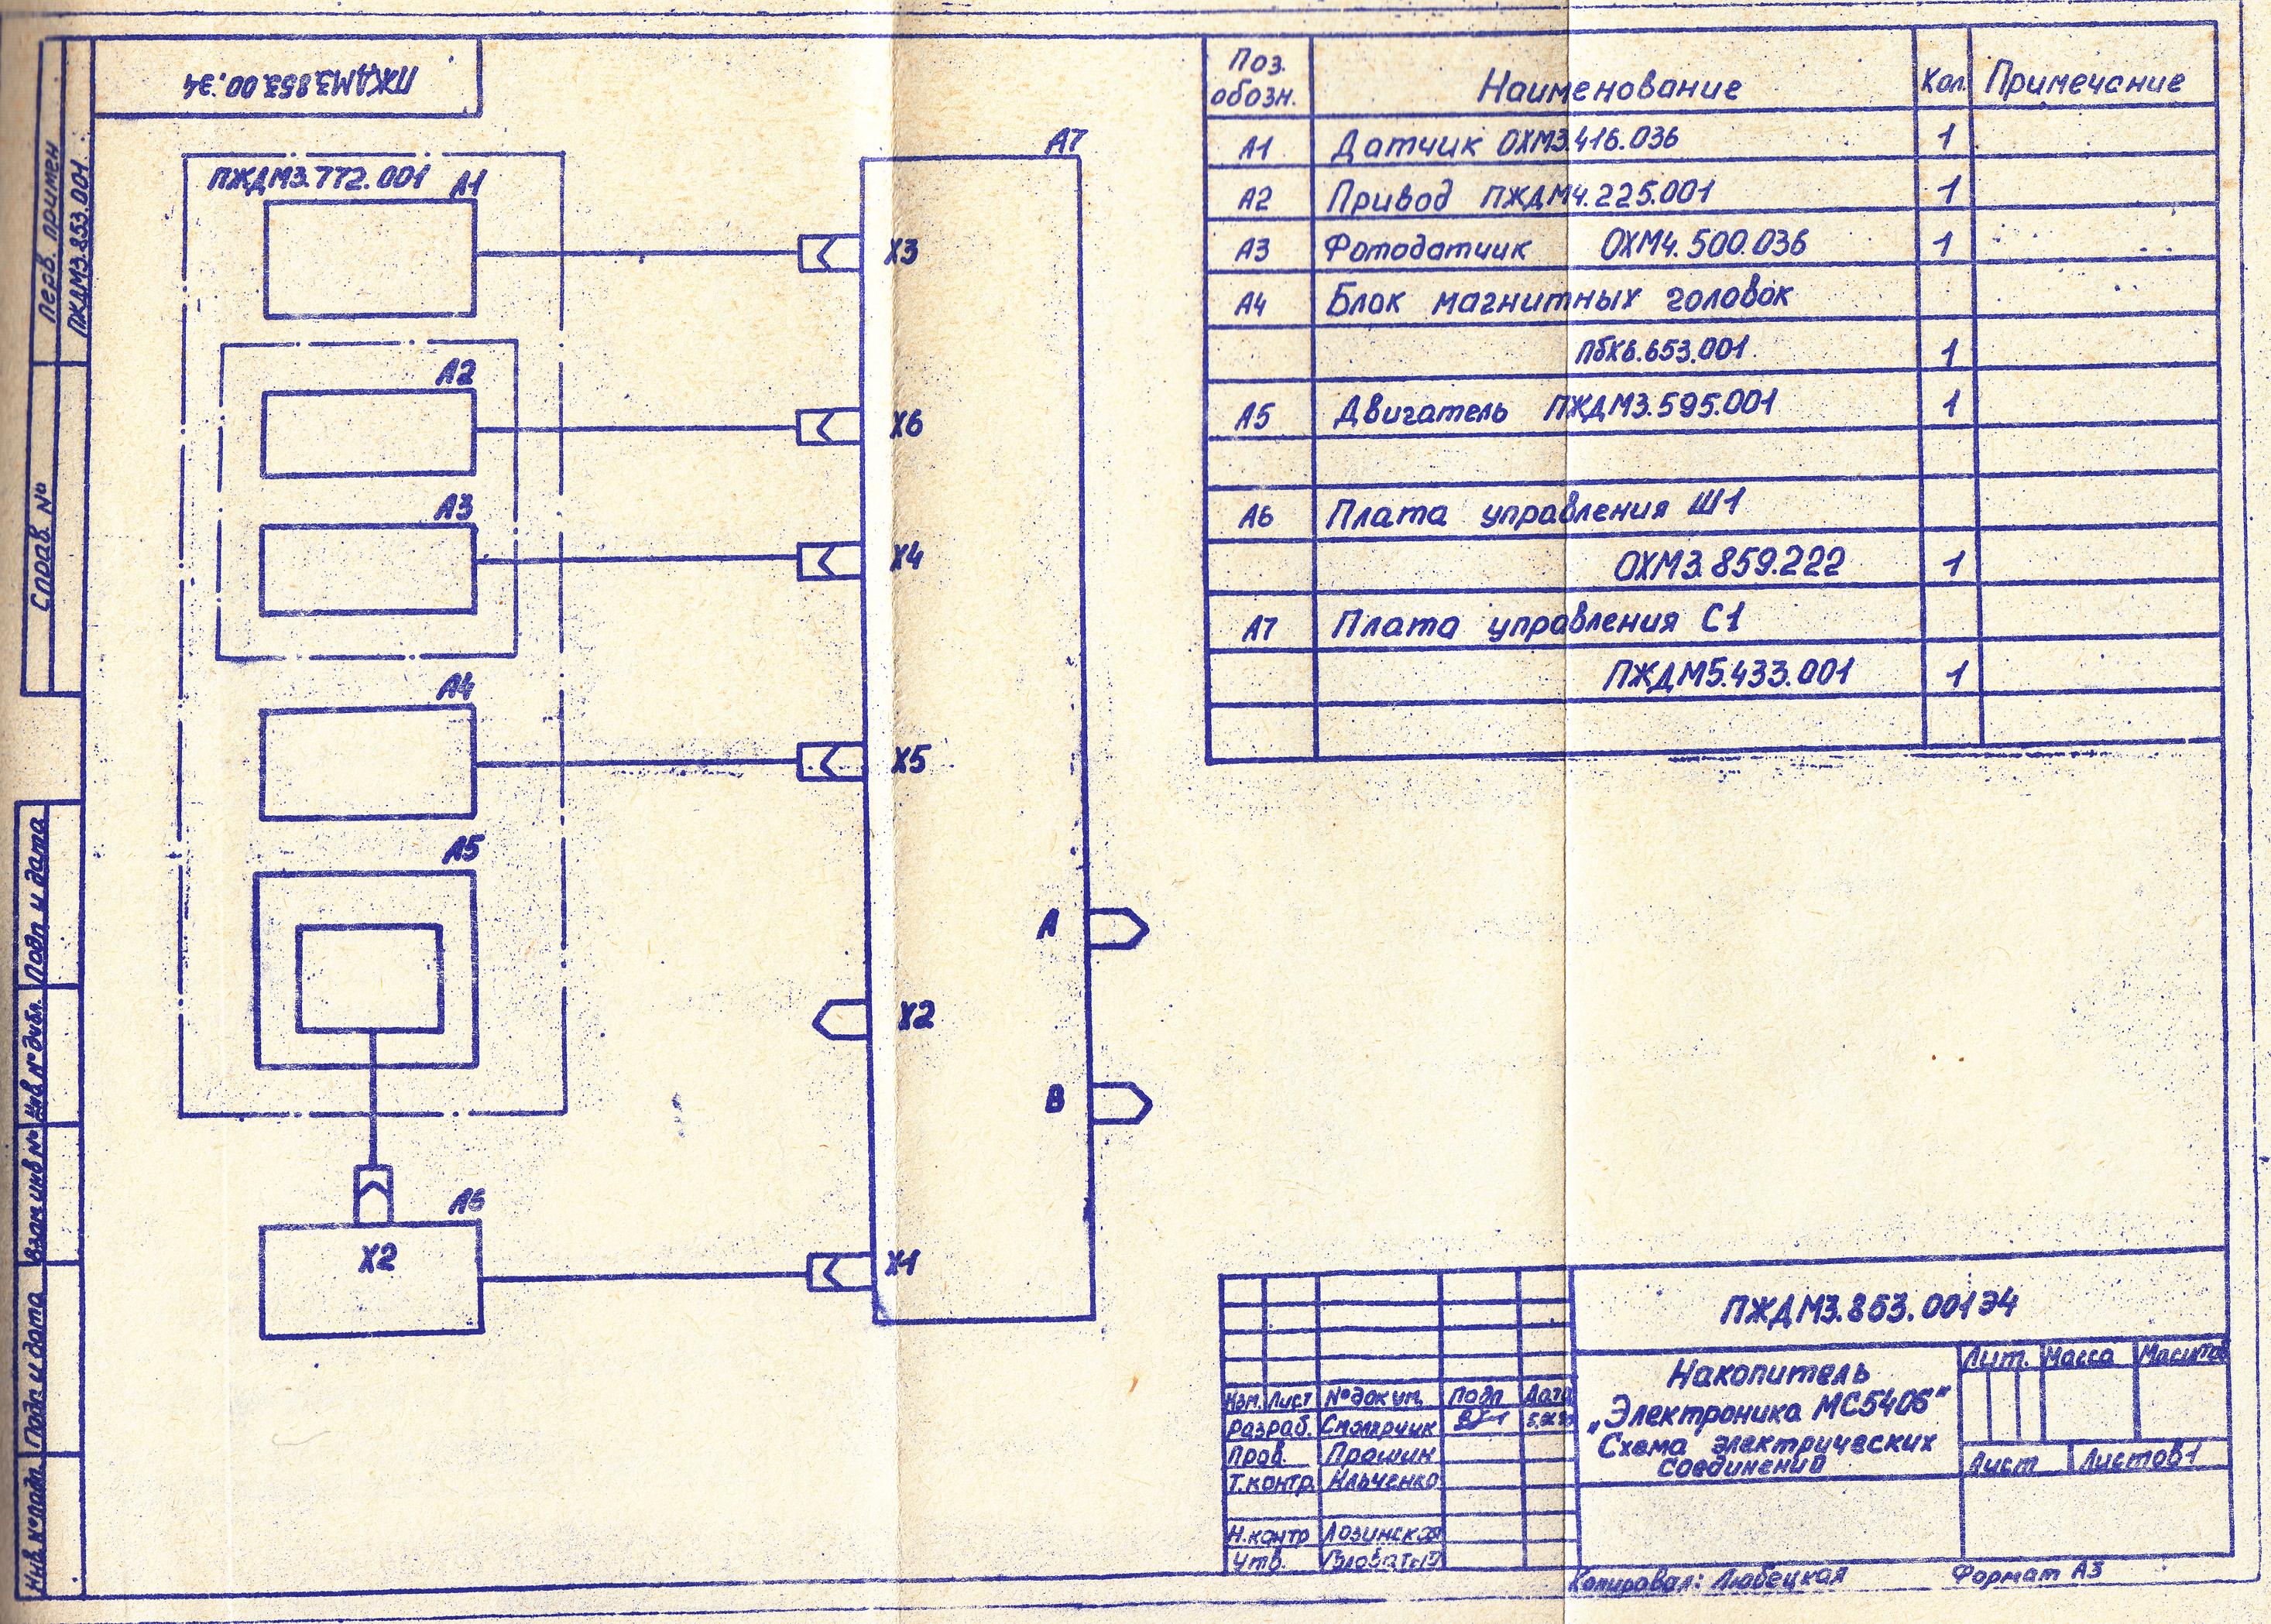 ПЖДМ3.853.00.Э4
Перв. примен
ПЖДМ3.853.001
Справ. №
Подп и дата
Инв № дубл.
Взам инв №
Подп и дата
Инв № подл
ПЖДМ3.772.001
А1
А2
А3
А4
А5
А6
Х2
А7
Х3
Х6
Х4
Х5
Х2
Х1
А
В
Поз. обозн. Наименование Кол. Примечание
А1 Датчик ОХМ3.416.036 1
А2 Привод ПЖДМ4.225.001 1
А3 Фотодатчик ОХМ4.500.036 1
А4 Блок магнитных головок
ПбК6.653.001 1
А5 Двигатель ПЖДМ3.595.001 1
А6 Плата управления Ш1
ОХМ3.859.222 1
А7 Плата управления С1
ПЖДМ5.433.001 1
ПЖДМ3.853.001Э4
Накопитель
„Электроника МС5405"
Схема электрических
соединений
Лит. Масса Масштаб
Лист Листов 1
Изм. Лист № докум. Подп Дата
Разраб.
Пров. Прошин
Т.контр. Ильченко
Н.контр Лозинская
Утв.
Копировал: Любецкая Формат А3